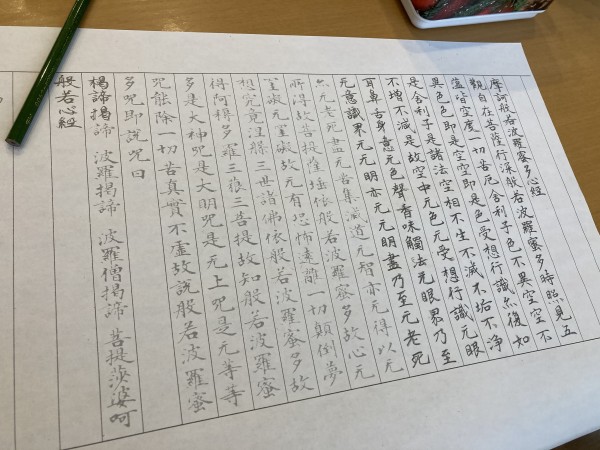 摩訶般若波羅蜜多心經
觀自在菩薩行深般若波羅蜜多時照見五
蘊皆空度一切苦厄舍利子色不異空空不
異色色即是空空即是色受想行識亦復如
是舍利子是諸法空相不生不滅不垢不淨
不增不減是故空中无色无受想行識无眼
耳鼻舌身意无色聲香味觸法无眼界乃至
无意識界无无明亦无无明盡乃至无老死
亦无老死盡无苦集滅道无智亦无得以无
所得故菩提薩埵依般若波羅蜜多故心无
罣礙无罣礙故无有恐怖遠離一切顛倒夢
想究竟涅槃三世諸佛依般若波羅蜜多故
得阿耨多羅三藐三菩提故知般若波羅蜜
多是大神呪是大明呪是无上呪是无等等
呪能除一切苦真實不虛故說般若波羅蜜
多呪即說呪曰
揭諦揭諦 波羅揭諦 波羅僧揭諦 菩提莎婆呵
般若心經